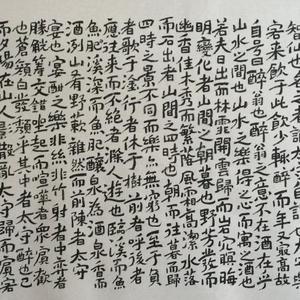 智仙也
客來飲于此飲少輒醉而年又最高故
自号曰醉翁也醉翁之意不在酒在乎
山水之間也山水之樂得之心而寓之酒也
若夫日出而林霏開雲歸而岩穴暝晦
明變化者山間之朝暮也野芳發而
幽香佳木秀而繁陰風霜高潔水落
而石出者山間之四時也朝而往暮而歸
四時之景不同而樂亦無窮也至于負
者歌于塗行者休于樹前者呼後者
應往來而不絕者滁人遊也臨溪而漁
魚肥溪深而魚肥釀泉為酒泉香而
酒洌山肴野蔌雜然而前陳者太守
宴也宴酣之樂非絲非竹射者中弈者
勝觥籌交錯坐起而喧嘩者衆賓歡
也蒼顏白髮頹乎其中者太守醉也已
而夕陽在山人影散亂太守歸而賓客